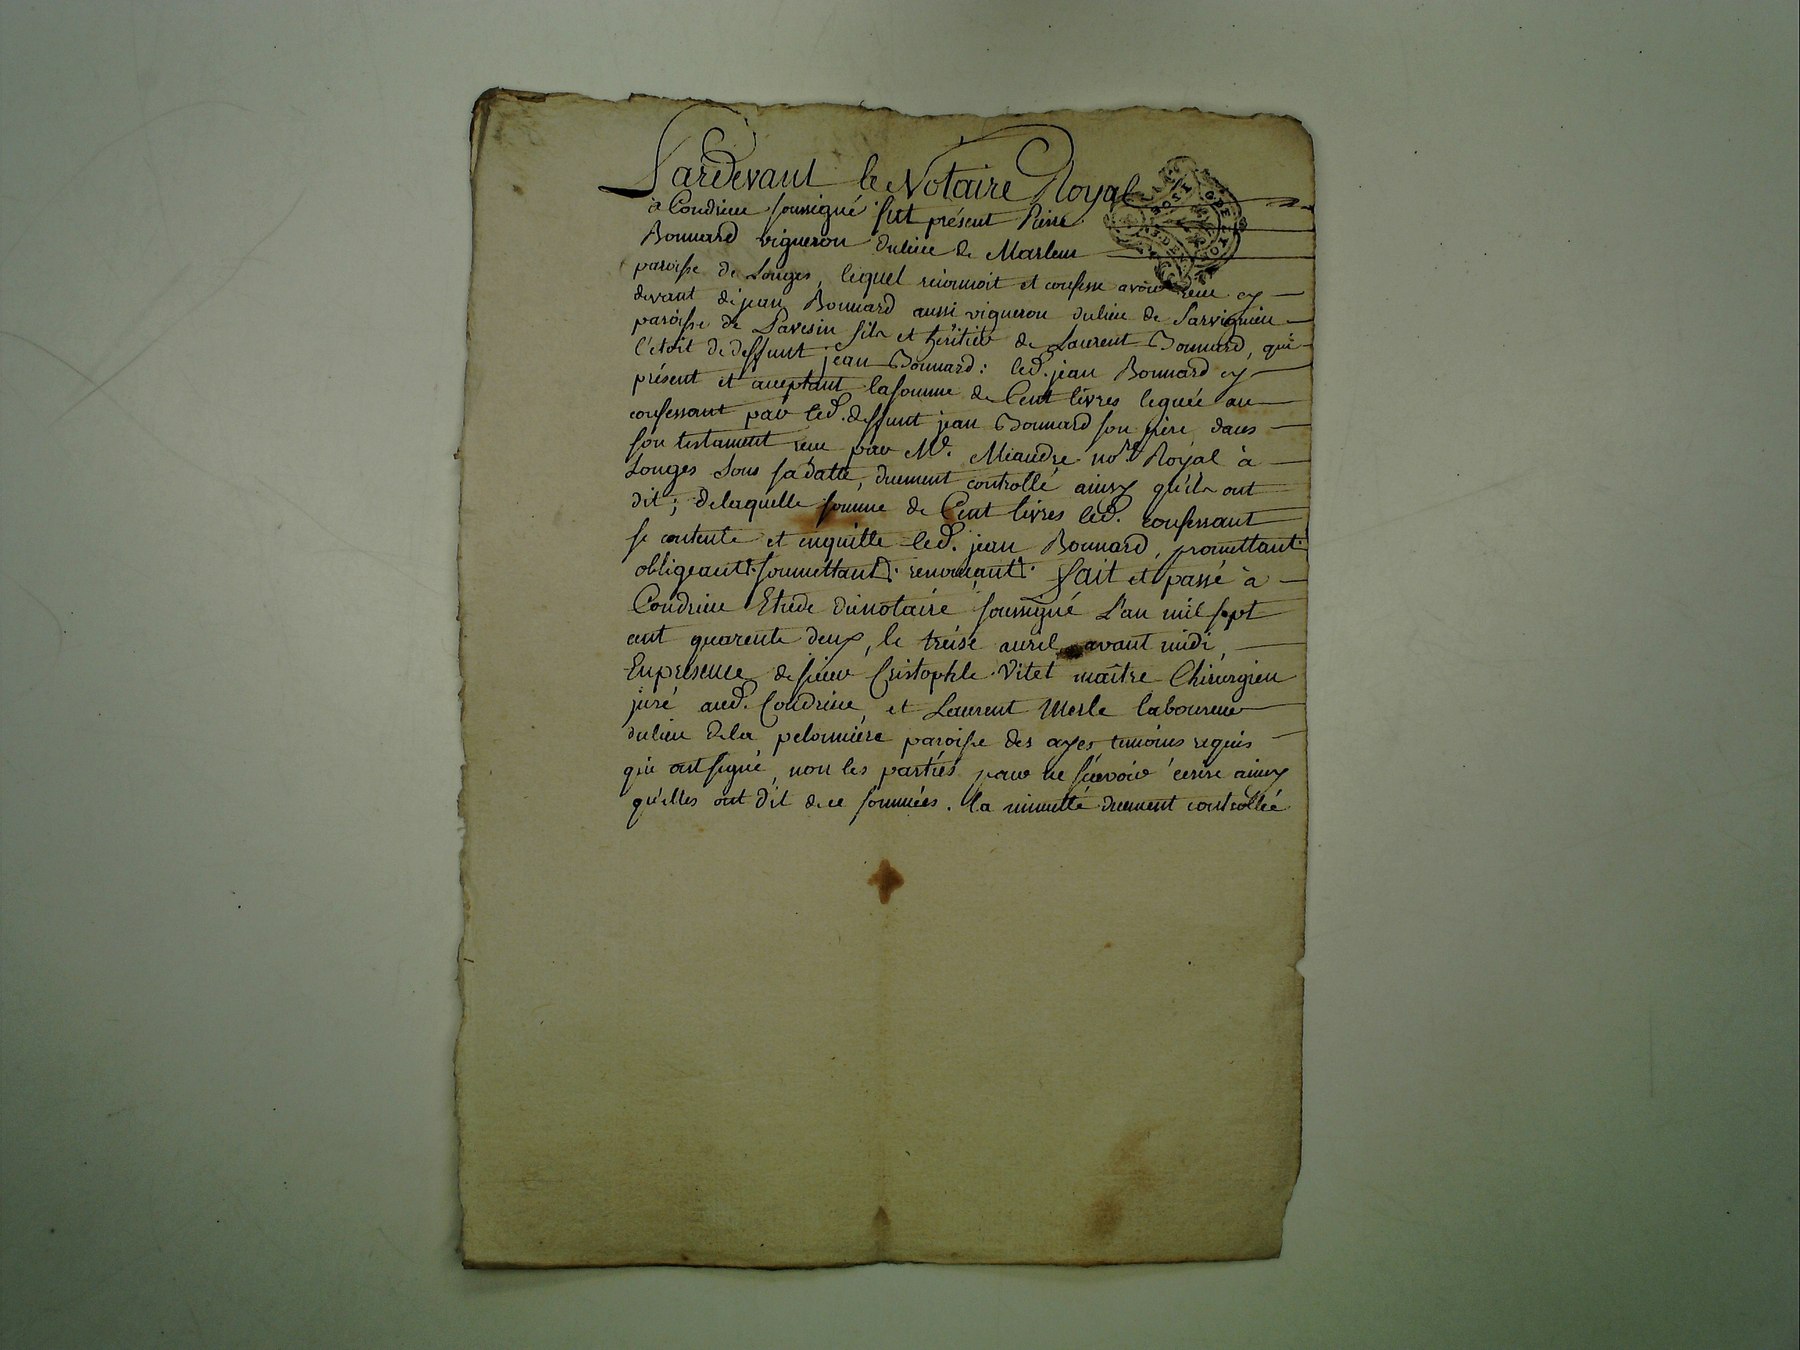 Pardevant le Notaire Royal
à Condrieu soussigné fut présent Pierre
Bonnard vigneron du lieu de Marlem
paroisse de Longes, lequel reconnoit et confesse avoir reçu cy
devant de jean Bonnard aussi vigneron du lieu de
paroisse de Pavesin fils et héritier de Laurent Bonnard, qui
l'étoit de deffunt jean Bonnard: led. jean Bonnard cy
présent et acceptant la somme de Cent livres leguée au
confessant par led. deffunt jean Bonnard son père dans
son testament reçu par Me. Miandre no.re Royal à
Longes sous sa datte, duement controllé ainsy qu'ils ont
dit; de laquelle somme de Cent livres led. confessant
se contente et enquitte led. jean Bonnard, promettant
obligeant soumettant renonçant fait et passé à
Condrieu Etude du notaire soussigné L'an mil sept
cent quarente deux, le treise avril avant midi,
En presence de sieur Cristophle Vitet maître Chirurgien
juré aud. Condrieu, et Laurent Merle laboureur
du lieu de la pelonnière paroisse des ayes temoins requis
qui ont signé, non les parties pour ne sçavoir écrire ainsy
qu'elles ont dit de ce sommées. la minutte duement controllée